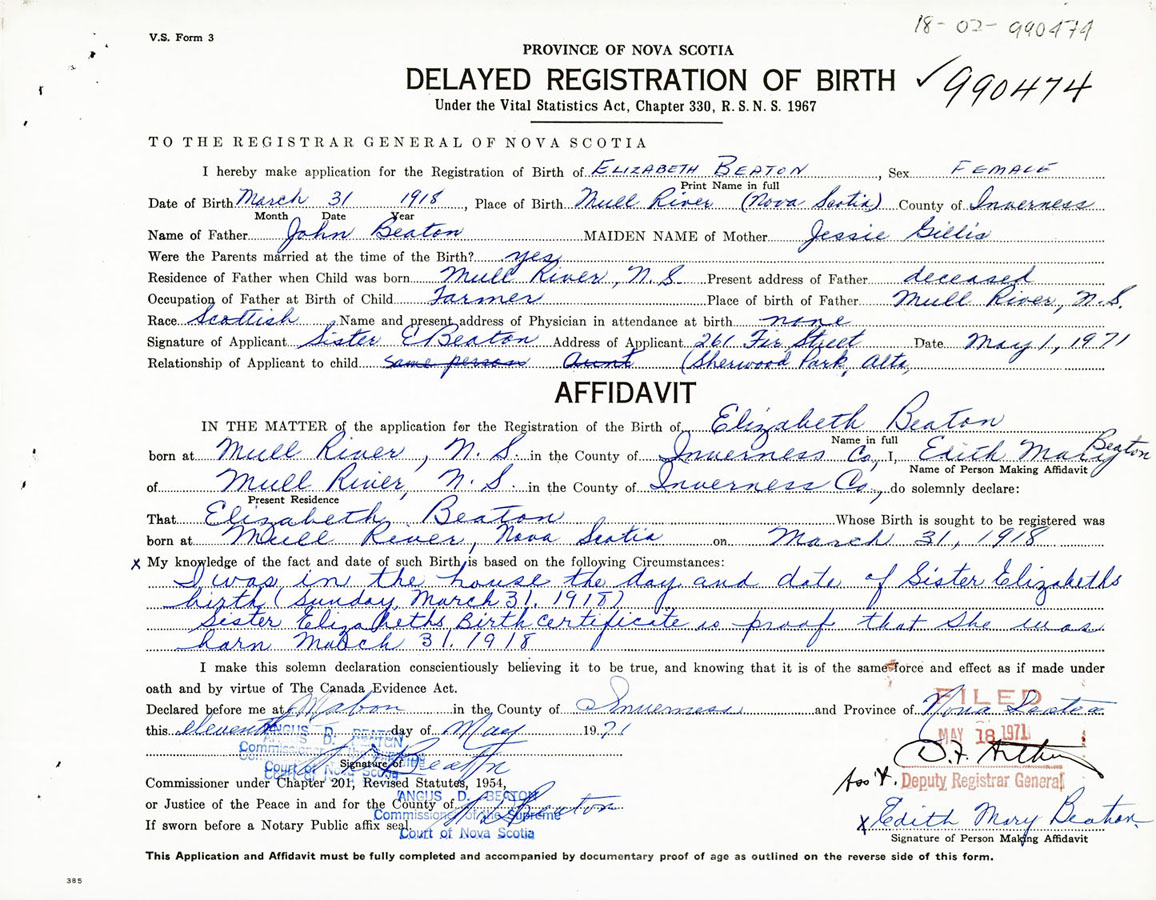 18-02-990474
V.S. Form 3
PROVINCE OF NOVA SCOTIA
DELAYED REGISTRATION OF BIRTH ✓990474
Under the Vital Statistics Act, Chapter 330, R. S. N. S. 1967
TO THE REGISTRAR GENERAL OF NOVA SCOTIA
I hereby make application for the Registration of Birth of ELIZABETH BEATON, Sex FEMALE
Print Name in full
Date of Birth March 31 1918, Place of Birth Mull River (Nova Scotia) County of Inverness
Month Date Year
Name of Father John Beaton MAIDEN NAME of Mother Jessie Gillis
Were the Parents married at the time of the Birth? yes
Residence of Father when Child was born Mull River, N.S. Present address of Father deceased
Occupation of Father at Birth of Child Farmer Place of birth of Father Mull River, N.S.
Race Scottish Name and present address of Physician in attendance at birth none
Signature of Applicant Sister E Beaton Address of Applicant 261 Fir Street Date May 1, 1971
Relationship of Applicant to child same person Aunt (Sherwood Park, Alta,
AFFIDAVIT
IN THE MATTER of the application for the Registration of the Birth of Elizabeth Beaton
Name in full
born at Mull River, N.S. in the County of Inverness Co., I, Edith Mary Beaton
Name of Person Making Affidavit
of Mull River, N.S. in the County of Inverness Co., do solemnly declare:
Present Residence
That Elizabeth Beaton Whose Birth is sought to be registered was
born at Mull River, Nova Scotia on March 31, 1918
x My knowledge of the fact and date of such Birth is based on the following Circumstances:
I was in the house the day and date of Sister Elizabeths
birth (Sunday, March 31. 1918)
Sister Elizabeths Birth certificate is proof that she was
born March 31. 1918
I make this solemn declaration conscientiously believing it to be true, and knowing that it is of the same force and effect as if made under
oath and by virtue of The Canada Evidence Act.
FILED
Declared before me at Mabou in the County of Inverness and Province of Nova Scotia
this eleventh day of May 1971
MAY 18 1971
ANGUS D. BEATON
Commissioner
Court of Nova Scotia
Signature of
Beaton
Deputy Registrar General
Commissioner under Chapter 201, Revised Statutes, 1954,
or Justice of the Peace in and for the County of
ANGUS D. BEATON
Commissioner of the Supreme
Court of Nova Scotia
Beaton
x Edith Mary Beaton
If sworn before a Notary Public affix seal
Signature of Person Making Affidavit
This Application and Affidavit must be fully completed and accompanied by documentary proof of age as outlined on the reverse side of this form.
385